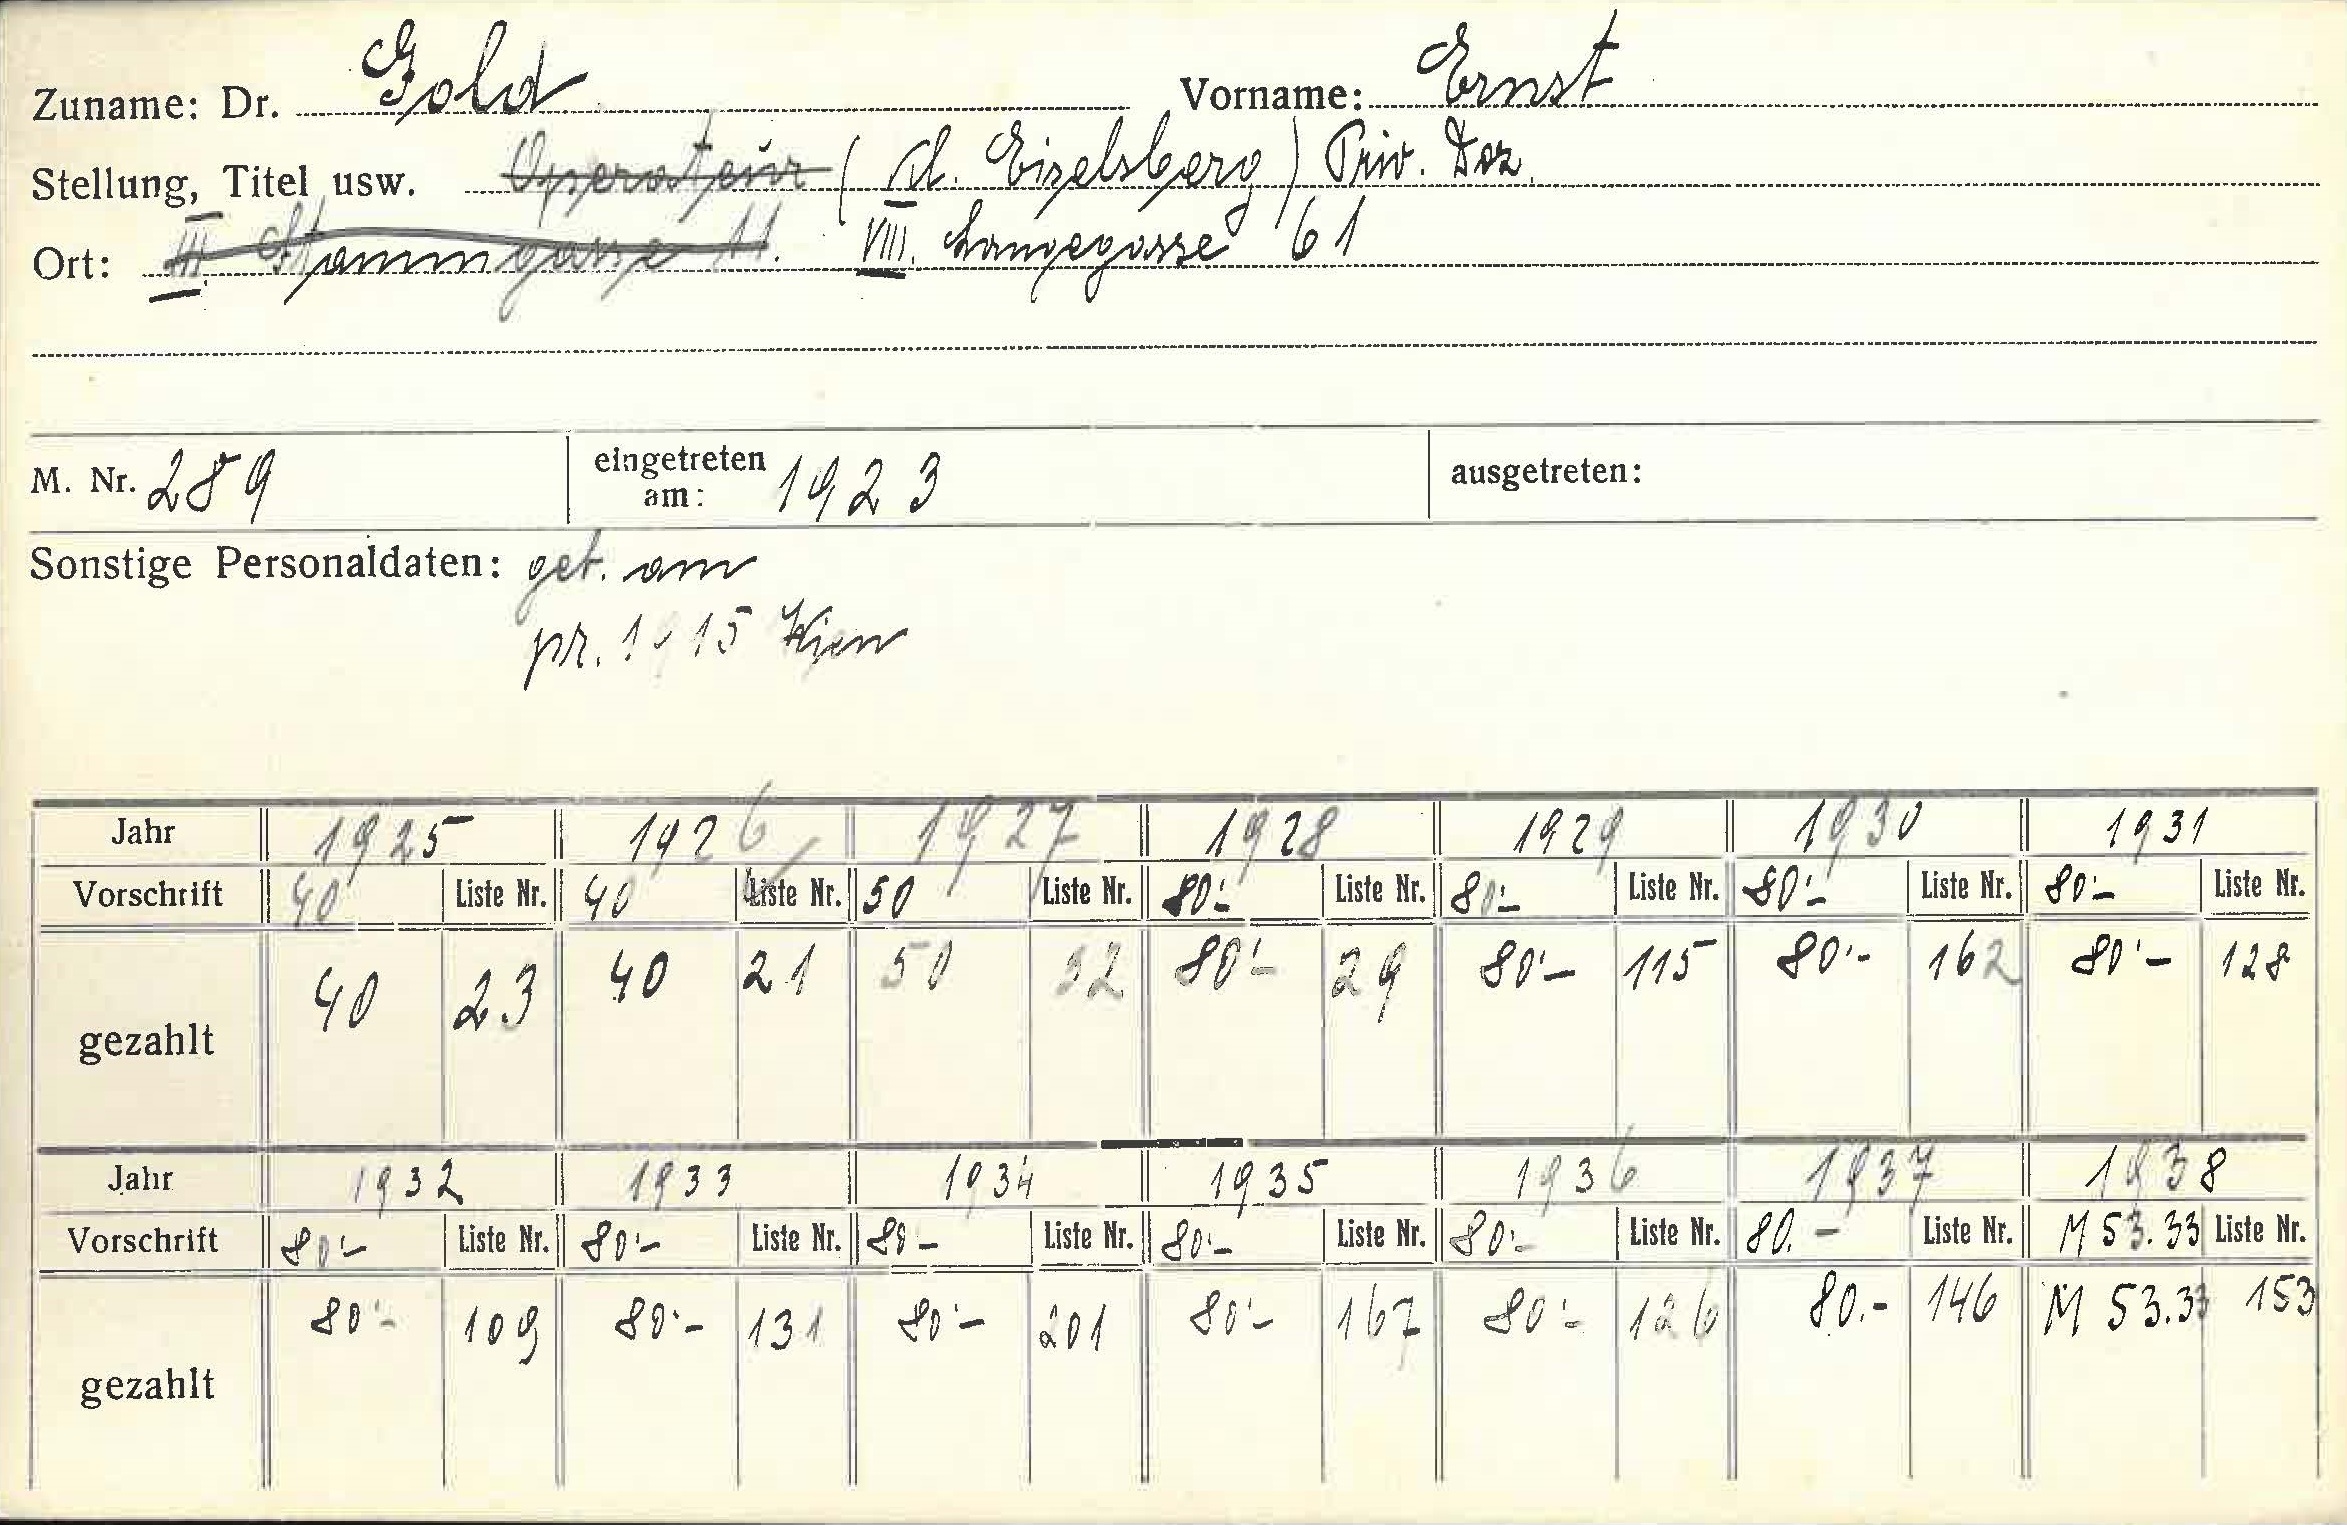 Zuname: Dr. Gold Vorname: Ernst
Stellung, Titel usw. Operateur (Kl. Eiselsberg) Priv. Doz.
Ort: III. Stammgasse 11. VIII. Langegasse 61
M. Nr. 289 eingetreten am: 1923 ausgetreten:
Sonstige Personaldaten: geb. am
pr. 1915 Wien
Jahr 1925 1926 1927 1928 1929 1930 1931
Vorschrift 40 Liste Nr. 40 Liste Nr. 50 Liste Nr. 80'- Liste Nr. 80'- Liste Nr. 80'- Liste Nr. 80'- Liste Nr.
gezahlt 40 23 40 21 50 32 80'- 29 80'- 115 80'- 162 80'- 128
Jahr 1932 1933 1934 1935 1936 1937 1938
Vorschrift 80'- Liste Nr. 80'- Liste Nr. 80- Liste Nr. 80'- Liste Nr. 80'- Liste Nr. 80.- Liste Nr. M 53.33 Liste Nr.
gezahlt 80'- 109 80'- 131 80'- 201 80'- 167 80'- 126 80.- 146 M 53.33 153